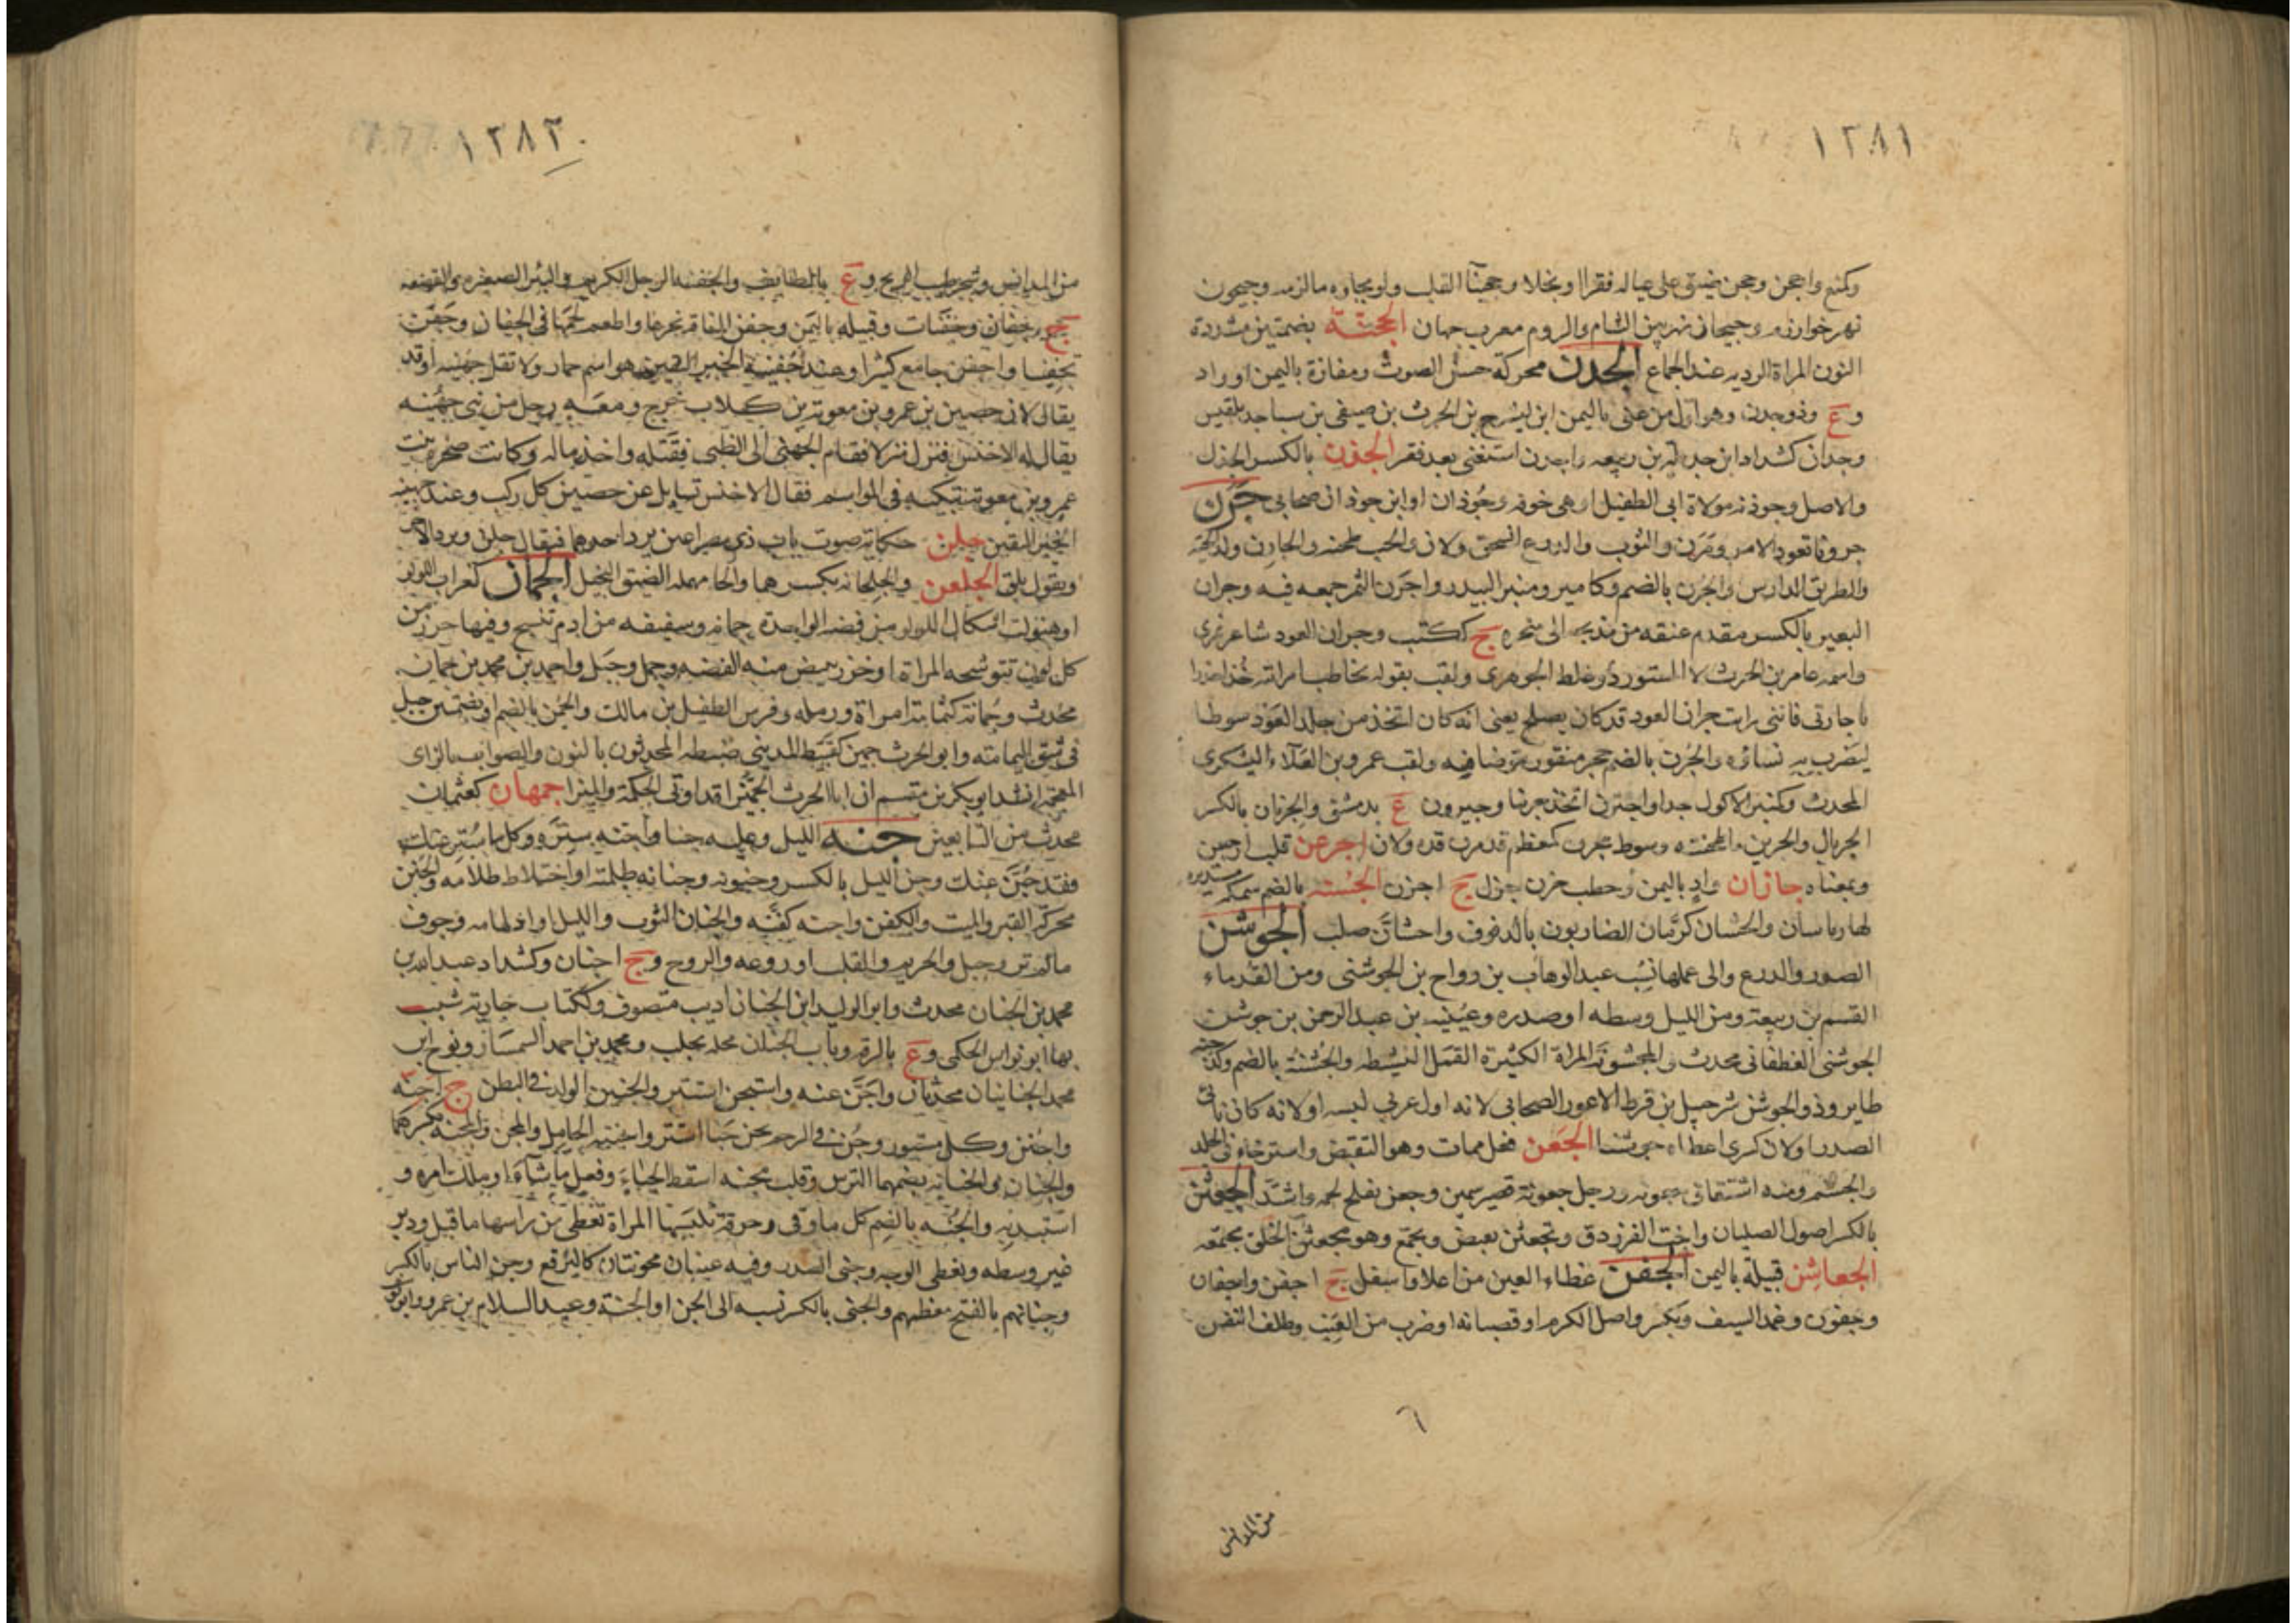 ١٢٨١
وكمنع واجحن وجحن ضيق على عياله فقرا او بخلا وجحينآ القلب ولويجاوه مالزمه وجيحون
نهر خوارزم وجيحان نهر بين الشام والروم معرب جهان الجخنّة بضمتين مشددة
النون المراة الرديه عند الجماع الجدن محركة حسن الصوت ومفازة باليمن او واد
وع وذوجدن وهو اول من غنى باليمن ابن ليشرح بن الحرث بن صيفى بن سبا جد بلقيس
وجدان كشداد ابن جديلة بن ربيعه واجدن استغنى بعد فقر الجذن بالكسر الجذل
والاصل وجوذنه مولاة ابى الطفيل او هى خوذه وجوذان او ابن جوذان صحابى جرن
جرونا تعود الامر ومرن والثوب والدرع انسحق ولان والحب طحنه والجارن ولد الحية
والطريق الدارس والجرن بالضم وكامير ومنبر البيدر واجرن التمر جمعه فيه وجران
البعير بالكسر مقدم عنقه من مذبحه الى منحره ج ككتب وجران العود شاعر نمرى
واسمه عامر بن الحرث لا المستورد وغلط الجوهرى ولقب بقوله يخاطب امراتيه خذا حذرا
يا جارتى فاننى رايت جران العود قد كان يصلح يعنى انه كان اتخذ من جلد العود سوطا
ليضرب به نساؤه والجرن بالضم حجر منقور يتوضا فيه ولقب عمرو بن العلآء اليشكرى
المحدث وكمنبر الاكول جدا واجترن اتخذ جرينا وجيرون ع بدمشق والجريان بالكسر
الجريال والجرين ما طحنته وسوط مجرن كمعظم قد مرن قده ولان اجرعن قلب ارجعن
وبمعناه جازان واد باليمن وحطب جزن جزل ج اجزن الجسنه بالضم سمكه مستديره
لها زباسان والجسان كرمان الضاربون بالدفوف واجشان صلب الجوشن
الصدر والدرع والى عملها نسب عبد الوهاب بن رواح بن الجوشنى ومن القدماء
القسم بن ربيعة ومن الليل وسطه او صدره وعيينه بن عبد الرحمن بن جوشن
الجوشنى الغطفانى محدث والمجشونة المراة الكثيرة العمل النشيطه والجشنة بالضم وكدجنه
طاير وذو الجوشن شرحبيل بن قرط الاعور الصحابى لانه اول عربى لبسه او لانه كان ناتئ
الصدر او لان كسرى اعطاه جوشنا الجعن فعل ممات وهو التقبض واسترخاء فى الجلد
والجسم ومنه اشتقاق جعونه ورجل جعونة قصير سمين وجعن تفلح لحمه واشتد الجعثن
بالكسر اصول الصليان واخت الفرزدق وتجعثن تعبض وتجمع وهو مجعثن الخلق مجتمعه
الجعاشن قبيلة باليمن الجفن غطاء العين من اعلا واسفل ج اجفن واجفان
وجفون وغمد السيف ويكسر واصل الكرم او قضبانه او ضرب من العنب وظلف النفس
٦
من المدانس
١٢٨٢
من المدانس وشجر طيب الريح وع بالطايف والجفنه الرجل الكريم والبئر الصغيره والقصعه
ج جفان وجفنات وقبيله باليمن وجفن الناقة نحرها واطعم لحمها فى الجفان وجفن
تجفينا واجفن جامع كثيرا وعند جفينة الخبر اليقين هو اسم خمار ولا تقل جهينه او قد
يقال لان حصين بن عمرو بن معوية بن كلاب خرج ومعه رجل من بنى جهينه
يقال له الاخنس فنزلا منزلا فقام الجهنى الى الكلبى فقتله واخذ ماله وكانت صخره بنت
عمرو بن معوية تبكيه فى المواسم فقال الاخنس تسايل عن حصين كل ركب وعند جهينه
الخبر اليقين جلن حكاية صوت باب ذى مصراعين يرد احدهما فيقال جلن ويرد الاخر
ويقول بلق الجلعن والجلحانه بكسرهما والحا مهمله الضيق البخيل الجمان كغراب اللولو
او هنوات اشكال اللولو من فضه الواحدة جمانه وسفيفه من ادم تنسج وفيها خرز من
كل لون تتوشحه المراة او خرز يبيض منه الفضه وجمل وجبل واحمد بن محمد بن جمان
محدث وجمانة كثمامة امراة ورمله وفرس الطفيل بن مالك والجمن بالضم او بضمتين جبل
فى شق اليمامة وابو الحرث جمين كقبيط المدينى ضبطه المحدثون بالنون والصواب بالزاى
المعجمة انشد ابو بكر بن مقسم ان ابا الحرث الجميز قد اوتى الحكمة والميزا جمهان كعثمان
محدث من التابعين جنه الليل وعليه جنا واجنه ستره وكل ما ستر عنك
فقد جن عنك وجن الليل بالكسر وجنونه وجنانه ظلمته او اختلاط ظلامه والجنن
محركة القبر والميت والكفن واجنه كفنه والجنان الثوب والليل او ادلهامه وجوف
ما لم تر وجبل والحريم والقلب او روعه والروح وج اجنان وكشداد عبد الله بن
محمد بن الجنان محدث وابو الوليد ابن الجنان اديب متصوف وككتاب جارية شبب
بها ابو نواس الحكمى وع بالرقه وباب الجنان محله بحلب ومحمد بن احمد السمسار ونوح ابن
محمد الجنانيان محدثان واجن عنه واستجن استتر والجنين الولد فى البطن ج اجنّه
واجنن وكل مستور وجن فى الرحم يجن جنا استتر واجنته الحامل والمجن والمجنه بكسرهما
والجنان والجنانه بضمهما الترس وقلب مجنه اسقط الحياء وفعل ما شآء او ملك امره و
استبد به والجنه بالضم كل ما وقى وخرقة تلبسها المراة تغطى من راسها ما قبل ودبر
غير وسطه وتغطى الوجه وجنبى الصدر وفيه عينان مجوبتان كالبرقع وجن الناس بالكسر
وجنانهم بالفتح معظمهم والجنى بالكسر نسبه الى الجن او الجنة وعبد السلام بن عمرو وابو يوسف